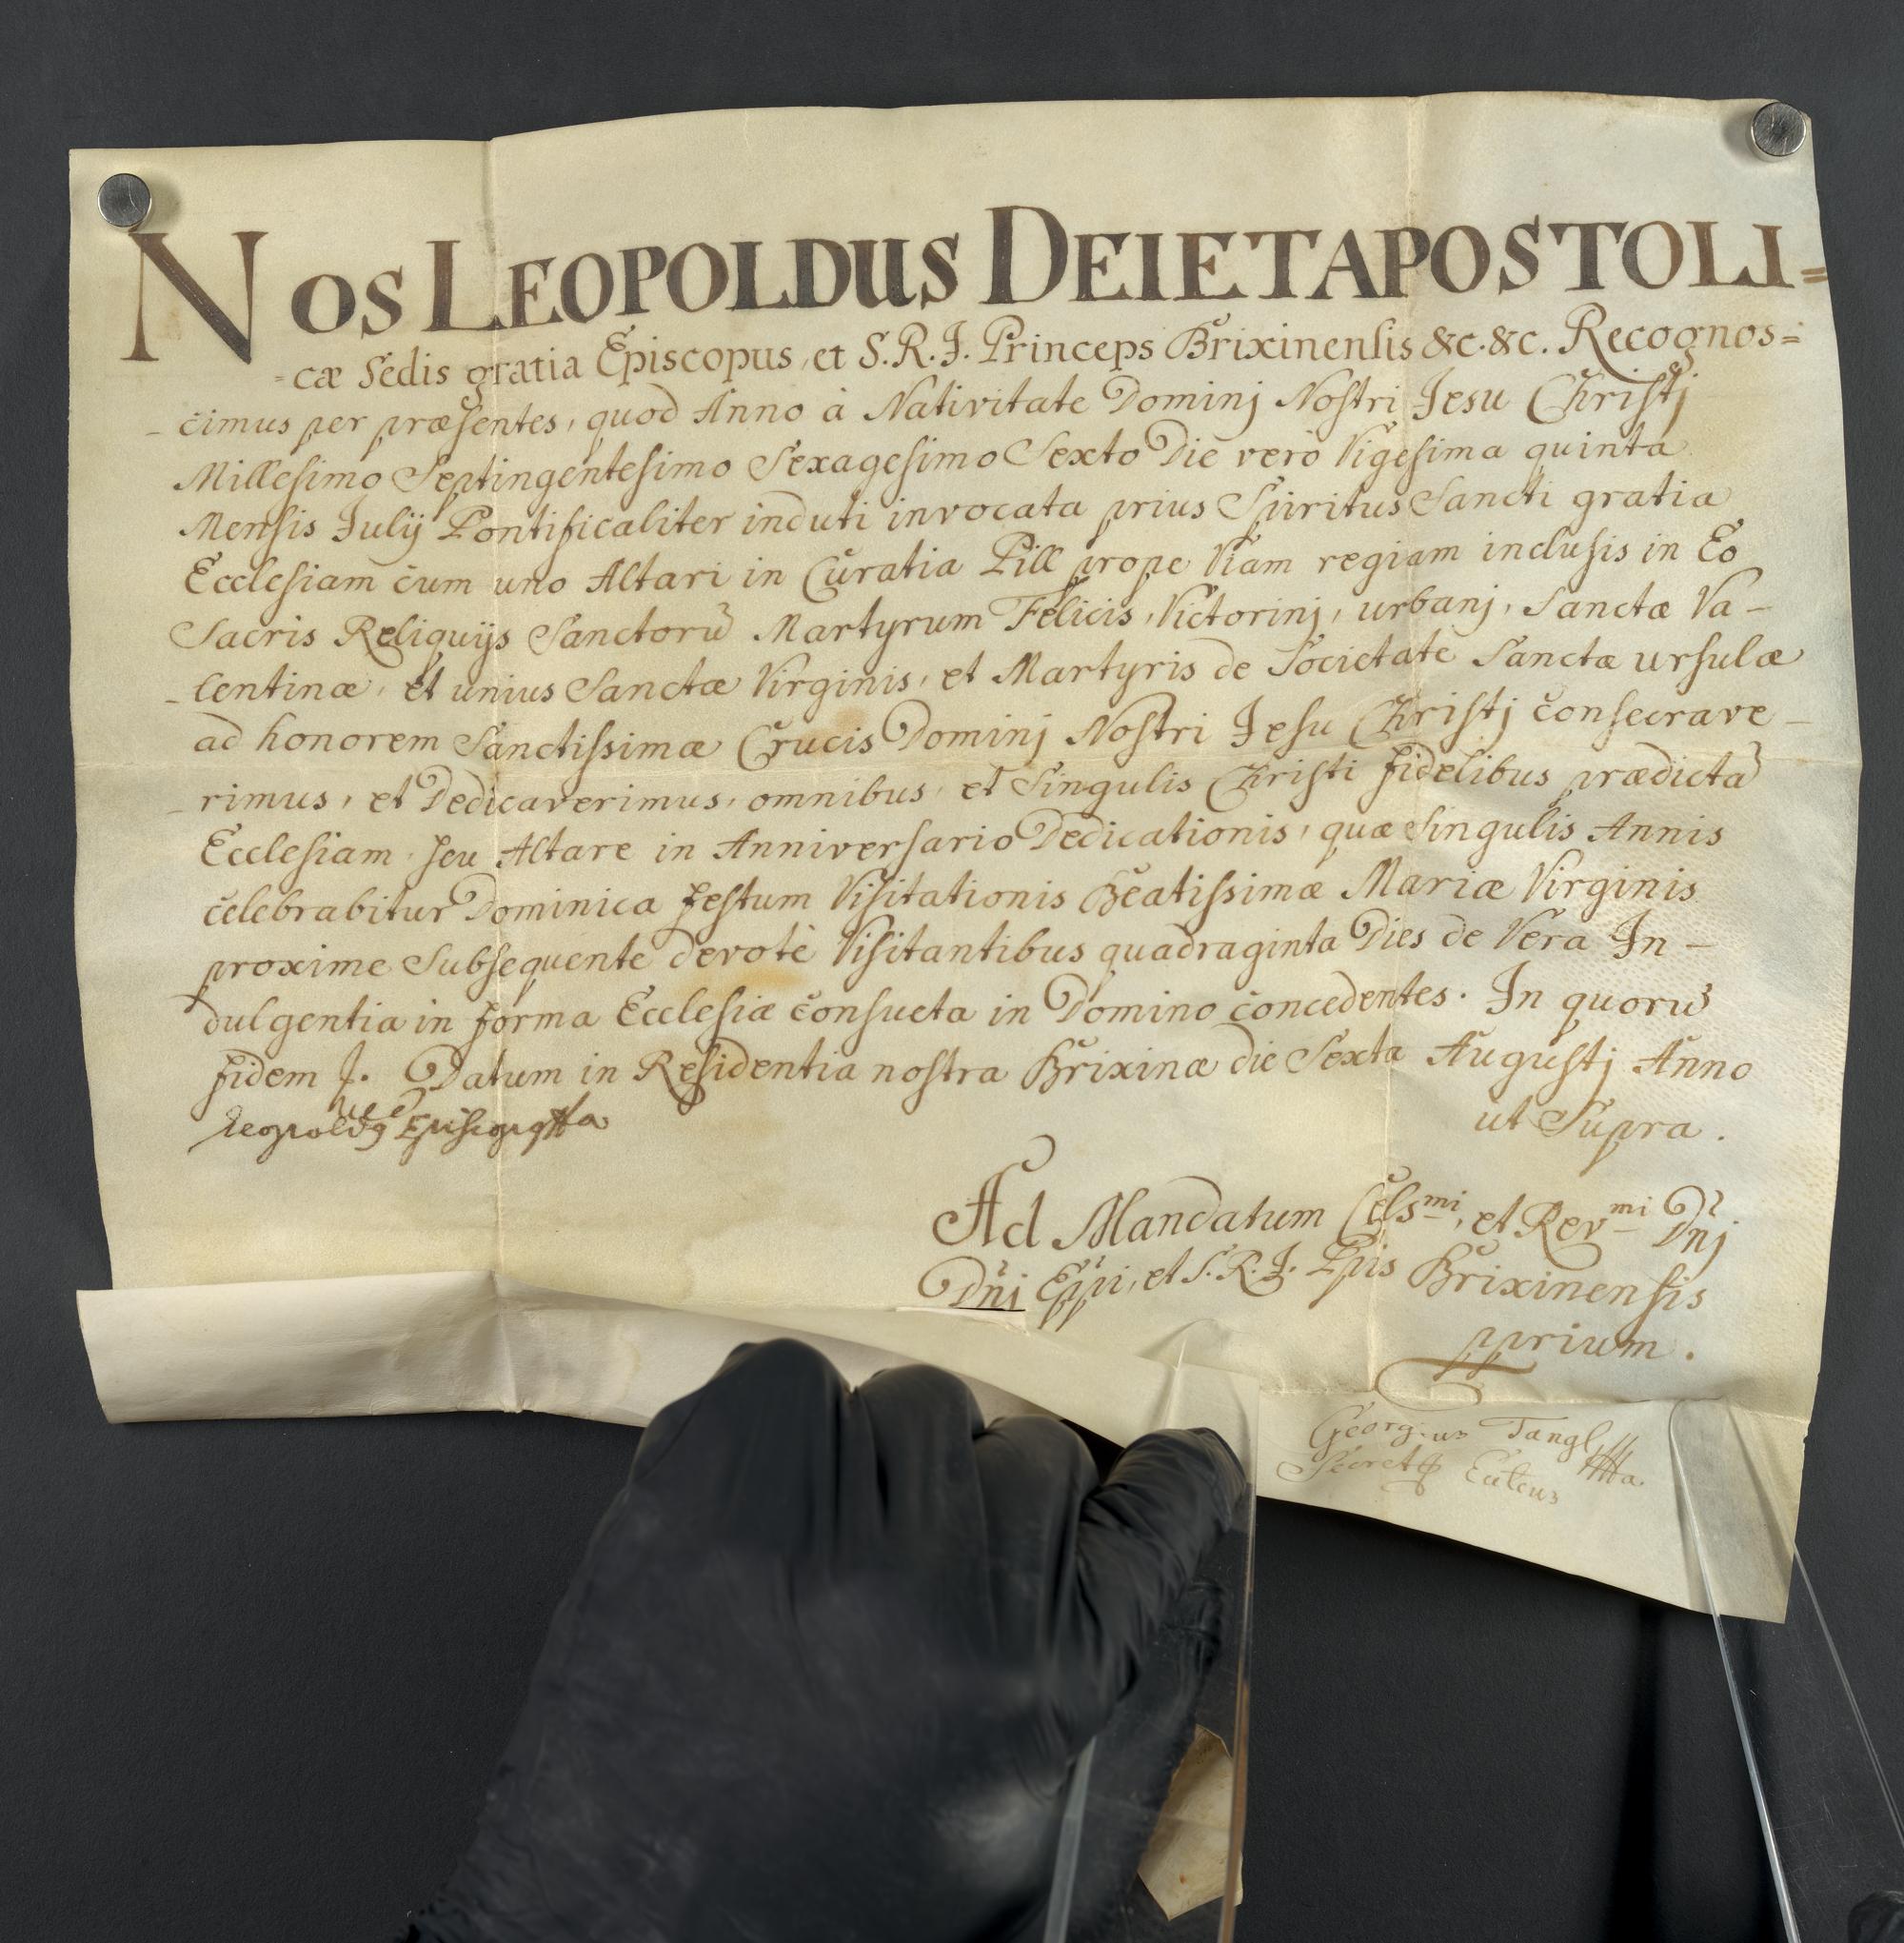 NOS LEOPOLDUS DEI ET APOSTOLI=
=cæ Sedis gratia Episcopus, et S. R. J. Princeps Brixinensis &c. &c. Recognos=
-cimus per præsentes, quod Anno à Nativitate Dominj Nostri Jesu Christj
Millesimo Septingentesimo Sexagesimo Sexto Die verò Vigesima quinta
Mensis Julij Pontificaliter induti invocata prius Spiritus Sancti gratia
Ecclesiam cum uno Altari in Curatia Pill prope Viam regiam inclusis in Eo
Sacris Reliquijs Sanctorũ Martyrum Felicis, Victorinj, urbanj, Sanctæ Va-
-lentinæ, et unius Sanctæ Virginis, et Martyris de Societate Sanctæ ursulæ
ad honorem Sanctissimæ Crucis Dominj Nostri Jesu Christj consecrave-
-rimus, et Dedicaverimus, omnibus, et Singulis Christi fidelibus prædictã
Ecclesiam seu Altare in Anniversario Dedicationis, quæ Singulis Annis
celebrabitur Dominica festum Visitationis Beatissimæ Mariæ Virginis
proxime Subsequente devotè Visitantibus quadraginta Dies de Vera In-
dulgentia in forma Ecclesiæ consueta in Domino concedentes. In quorũ
fidem J. Datum in Residentia nostra Brixinæ die Sexta Augustj Anno
ut Supra.
Leopoldg Episcopg
Ad Mandatum Cels<sup>mi</sup>, et Rev<sup>mi</sup> Dñj
Dñj Eppi, et S. R. J. Ppis Brixinensis
pprium.
Georgius Tangl
Secret